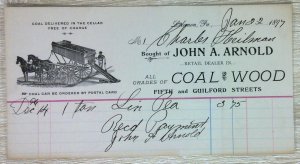 COAL DELIVERED IN THE CELLAR
FREE OF CHARGE
COAL CAN BE ORDERED BY POSTAL CARD
Pa., Jan 22 1897
M Charles
Bought of JOHN A. ARNOLD
RETAIL DEALER IN
ALL GRADES OF COAL AND WOOD
FIFTH AND GUILFORD STREETS
1 ton Pea 3 75
Recd Payment
John A Arnold